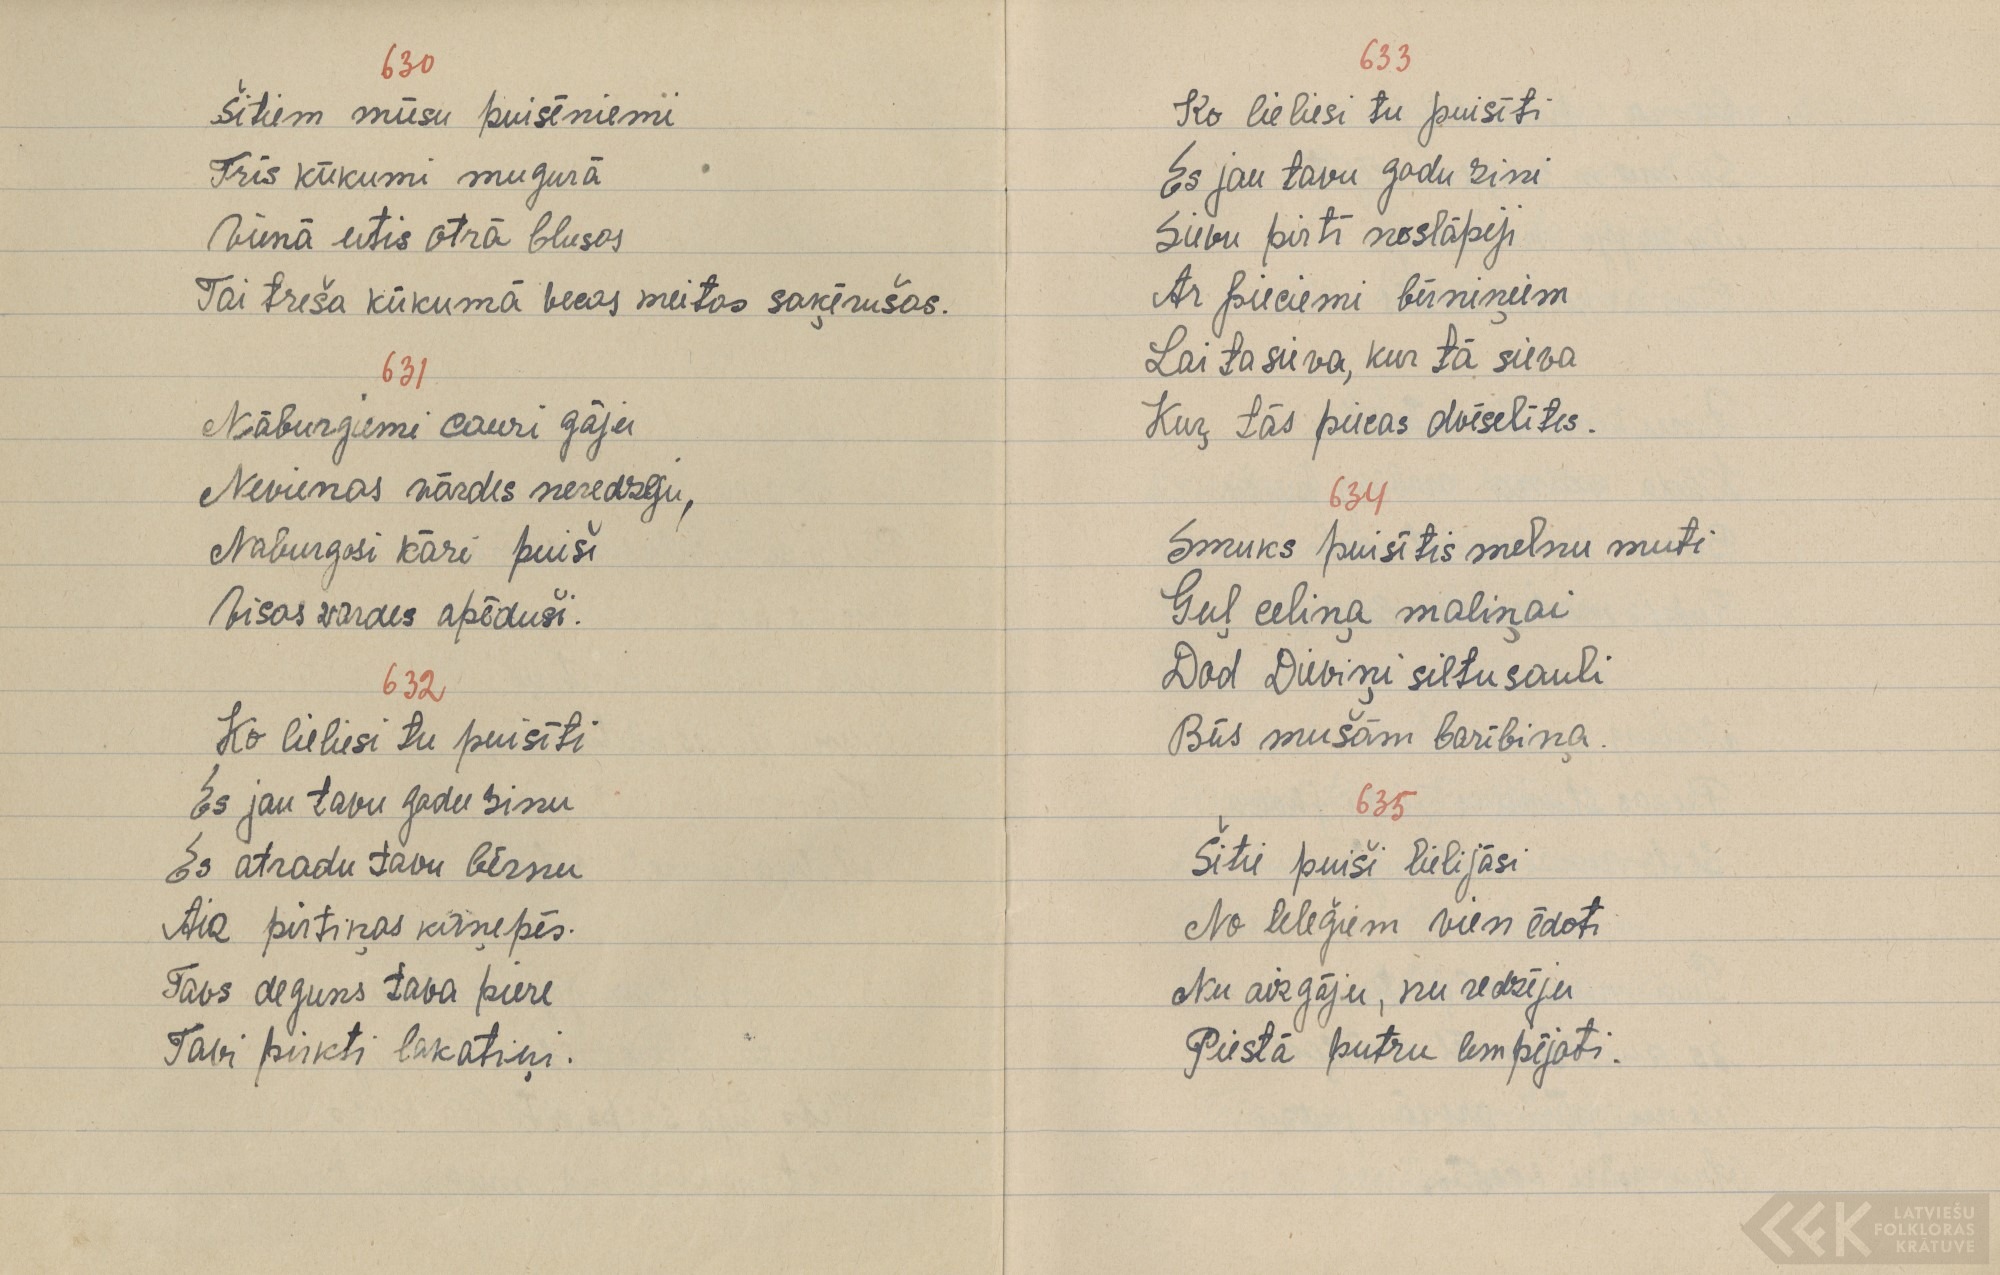 630
Šitiem mūsu puisēniemi
Trīs kūkumi mugurā
Vienā utis otrā blusas
Tai treša kūkumā vecas meitas saķērušas.
631
Nāburgiemi cauri gāju
Nevienas vārdes neredzēju,
Naburgosi kāri puiši
Visas vardes apēduši.
632
Ko lieliesi tu puisīti
Es jau tavu godu zinu
Es atradu tavu bērnu
Aiz pirtiņas kūņepēs.
Tavs deguns tava piere
Tavi pirkti lakatiņi.
633
Ko lieliesi tu puisīti
Es jau tavu godu zini
Sievu pirtī noslāpēji
Ar pieciemi bērniņiem
Lai ta sieva, kur tā sieva
Kuŗ tās piecas dvēselītes.
634
Smuks puisītis melnu muti
Guļ celiņa maliņai
Dod Dieviņi siltu sauli
Būs mušām barībiņa.
635
Šitie puiši lielijāsi
No leleģiem vien ēdoti
Nu aizgāju, nu redzēju
Piestā putru lempējoti.
LATVIEŠU
FOLKLORAS
KRĀTUVE